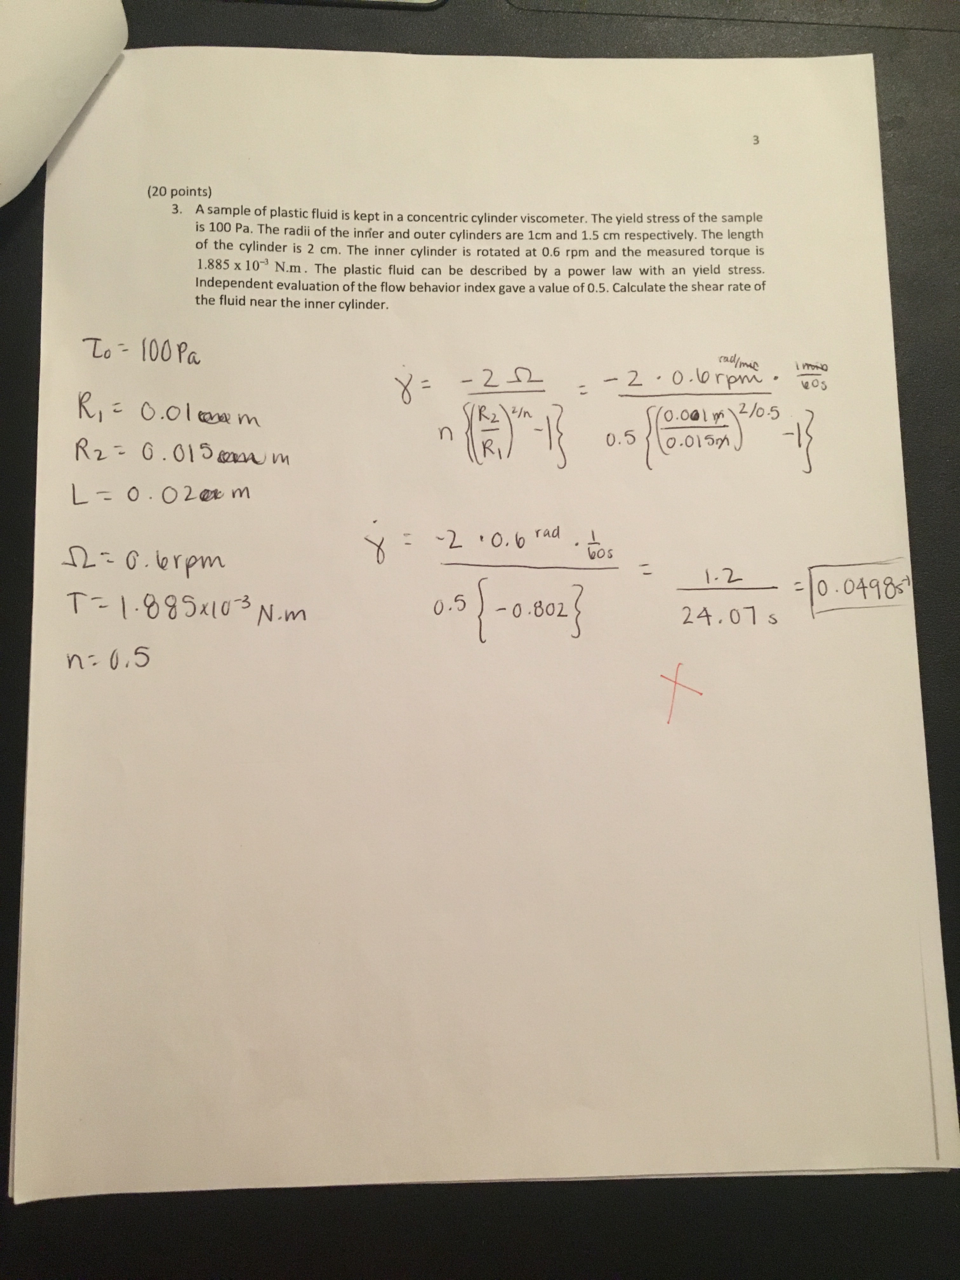 3
(20 points)
3. A sample of plastic fluid is kept in a concentric cylinder viscometer. The yield stress of the sample
is 100 Pa. The radii of the inner and outer cylinders are 1cm and 1.5 cm respectively. The length
of the cylinder is 2 cm. The inner cylinder is rotated at 0.6 rpm and the measured torque is
1.885 x 10⁻³ N.m. The plastic fluid can be described by a power law with an yield stress.
Independent evaluation of the flow behavior index gave a value of 0.5. Calculate the shear rate of
the fluid near the inner cylinder.
τ₀ = 100 Pa
R₁ = 0.01 m
R₂ = 0.015 m
L = 0.02 m
Ω = 0.6 rpm
T = 1.885x10⁻³ N.m
n = 0.5
γ̇ = -2Ω / n{(R₂/R₁)^2/n -1} = -2 · 0.6 rpm rad/min · 1 min/60s / 0.5{(0.001 m/0.015m)^2/0.5 -1}
γ̇ = -2 · 0.6 rad · 1/60s / 0.5{-0.802} = 1.2/24.07 s = 0.0498 s⁻¹